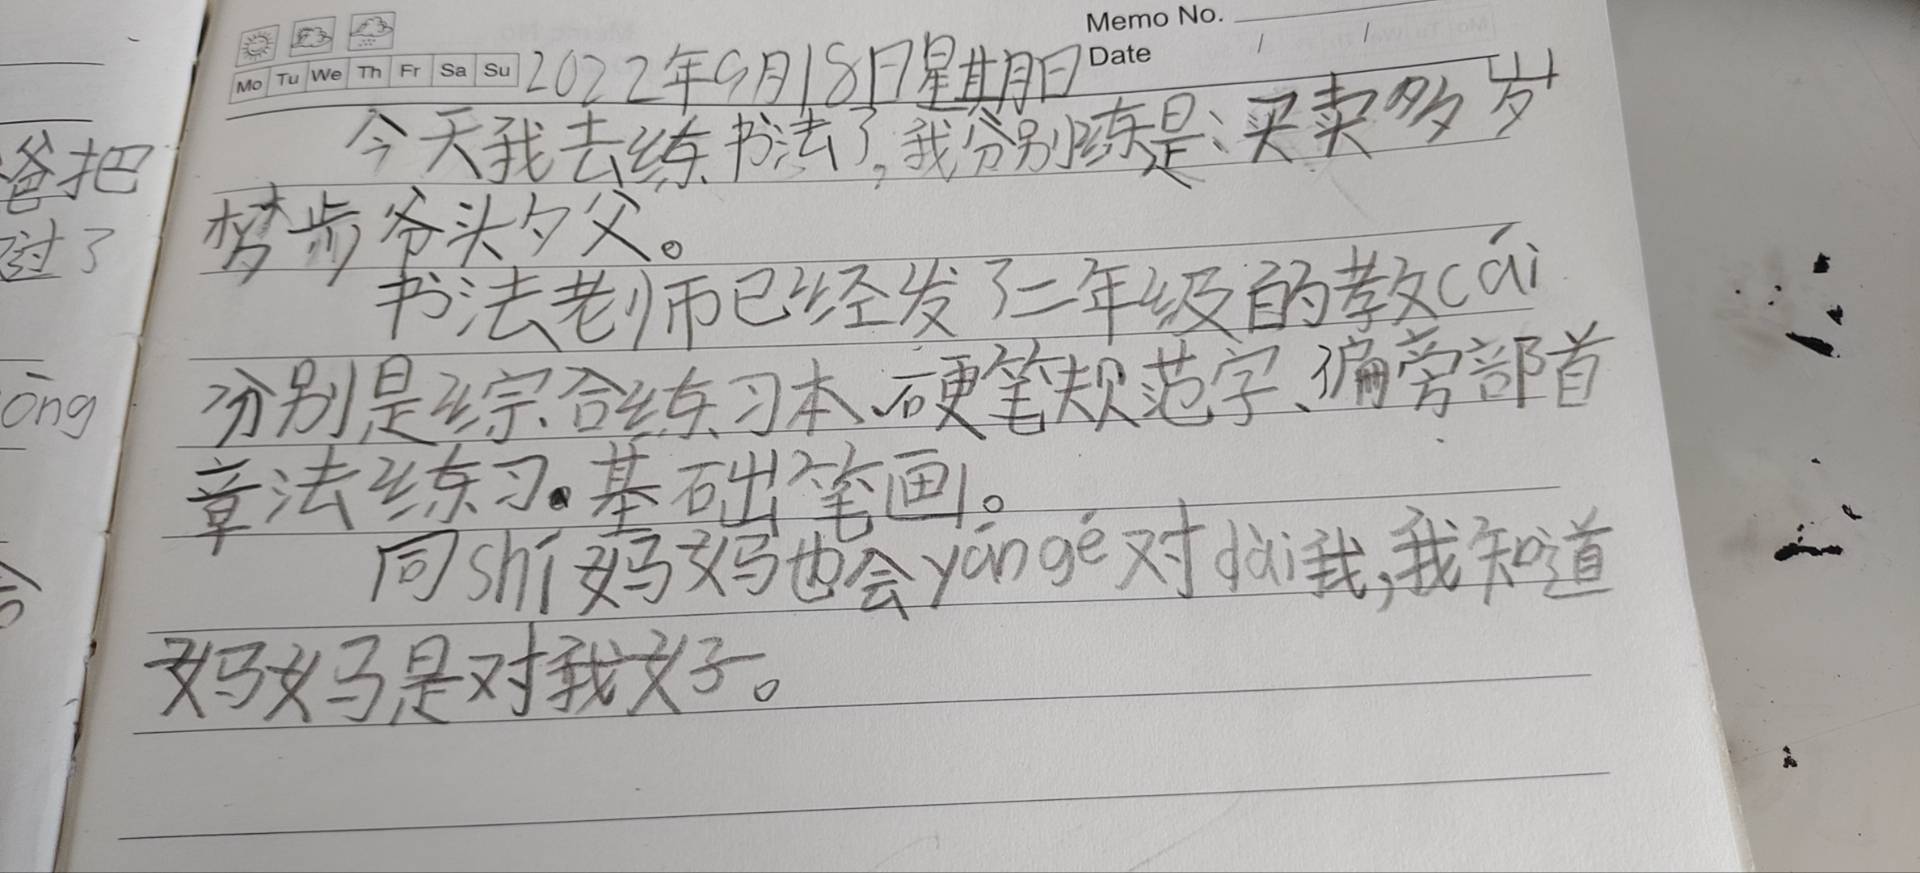 Memo No.
Mo Tu We Th Fr Sa Su
Date / /
2022年9月18日星期日
今天我去练书法了,我分别练是:买卖多岁
梦步爷头夕父。
书法老师已经发了二年级的教cái
分别是综合练习本、硬笔规范字、偏旁部首
章法练习.基础笔画。
同shí妈妈也会yángé对dài我,我知道
妈妈是对我好。
爸把
过了
ōng